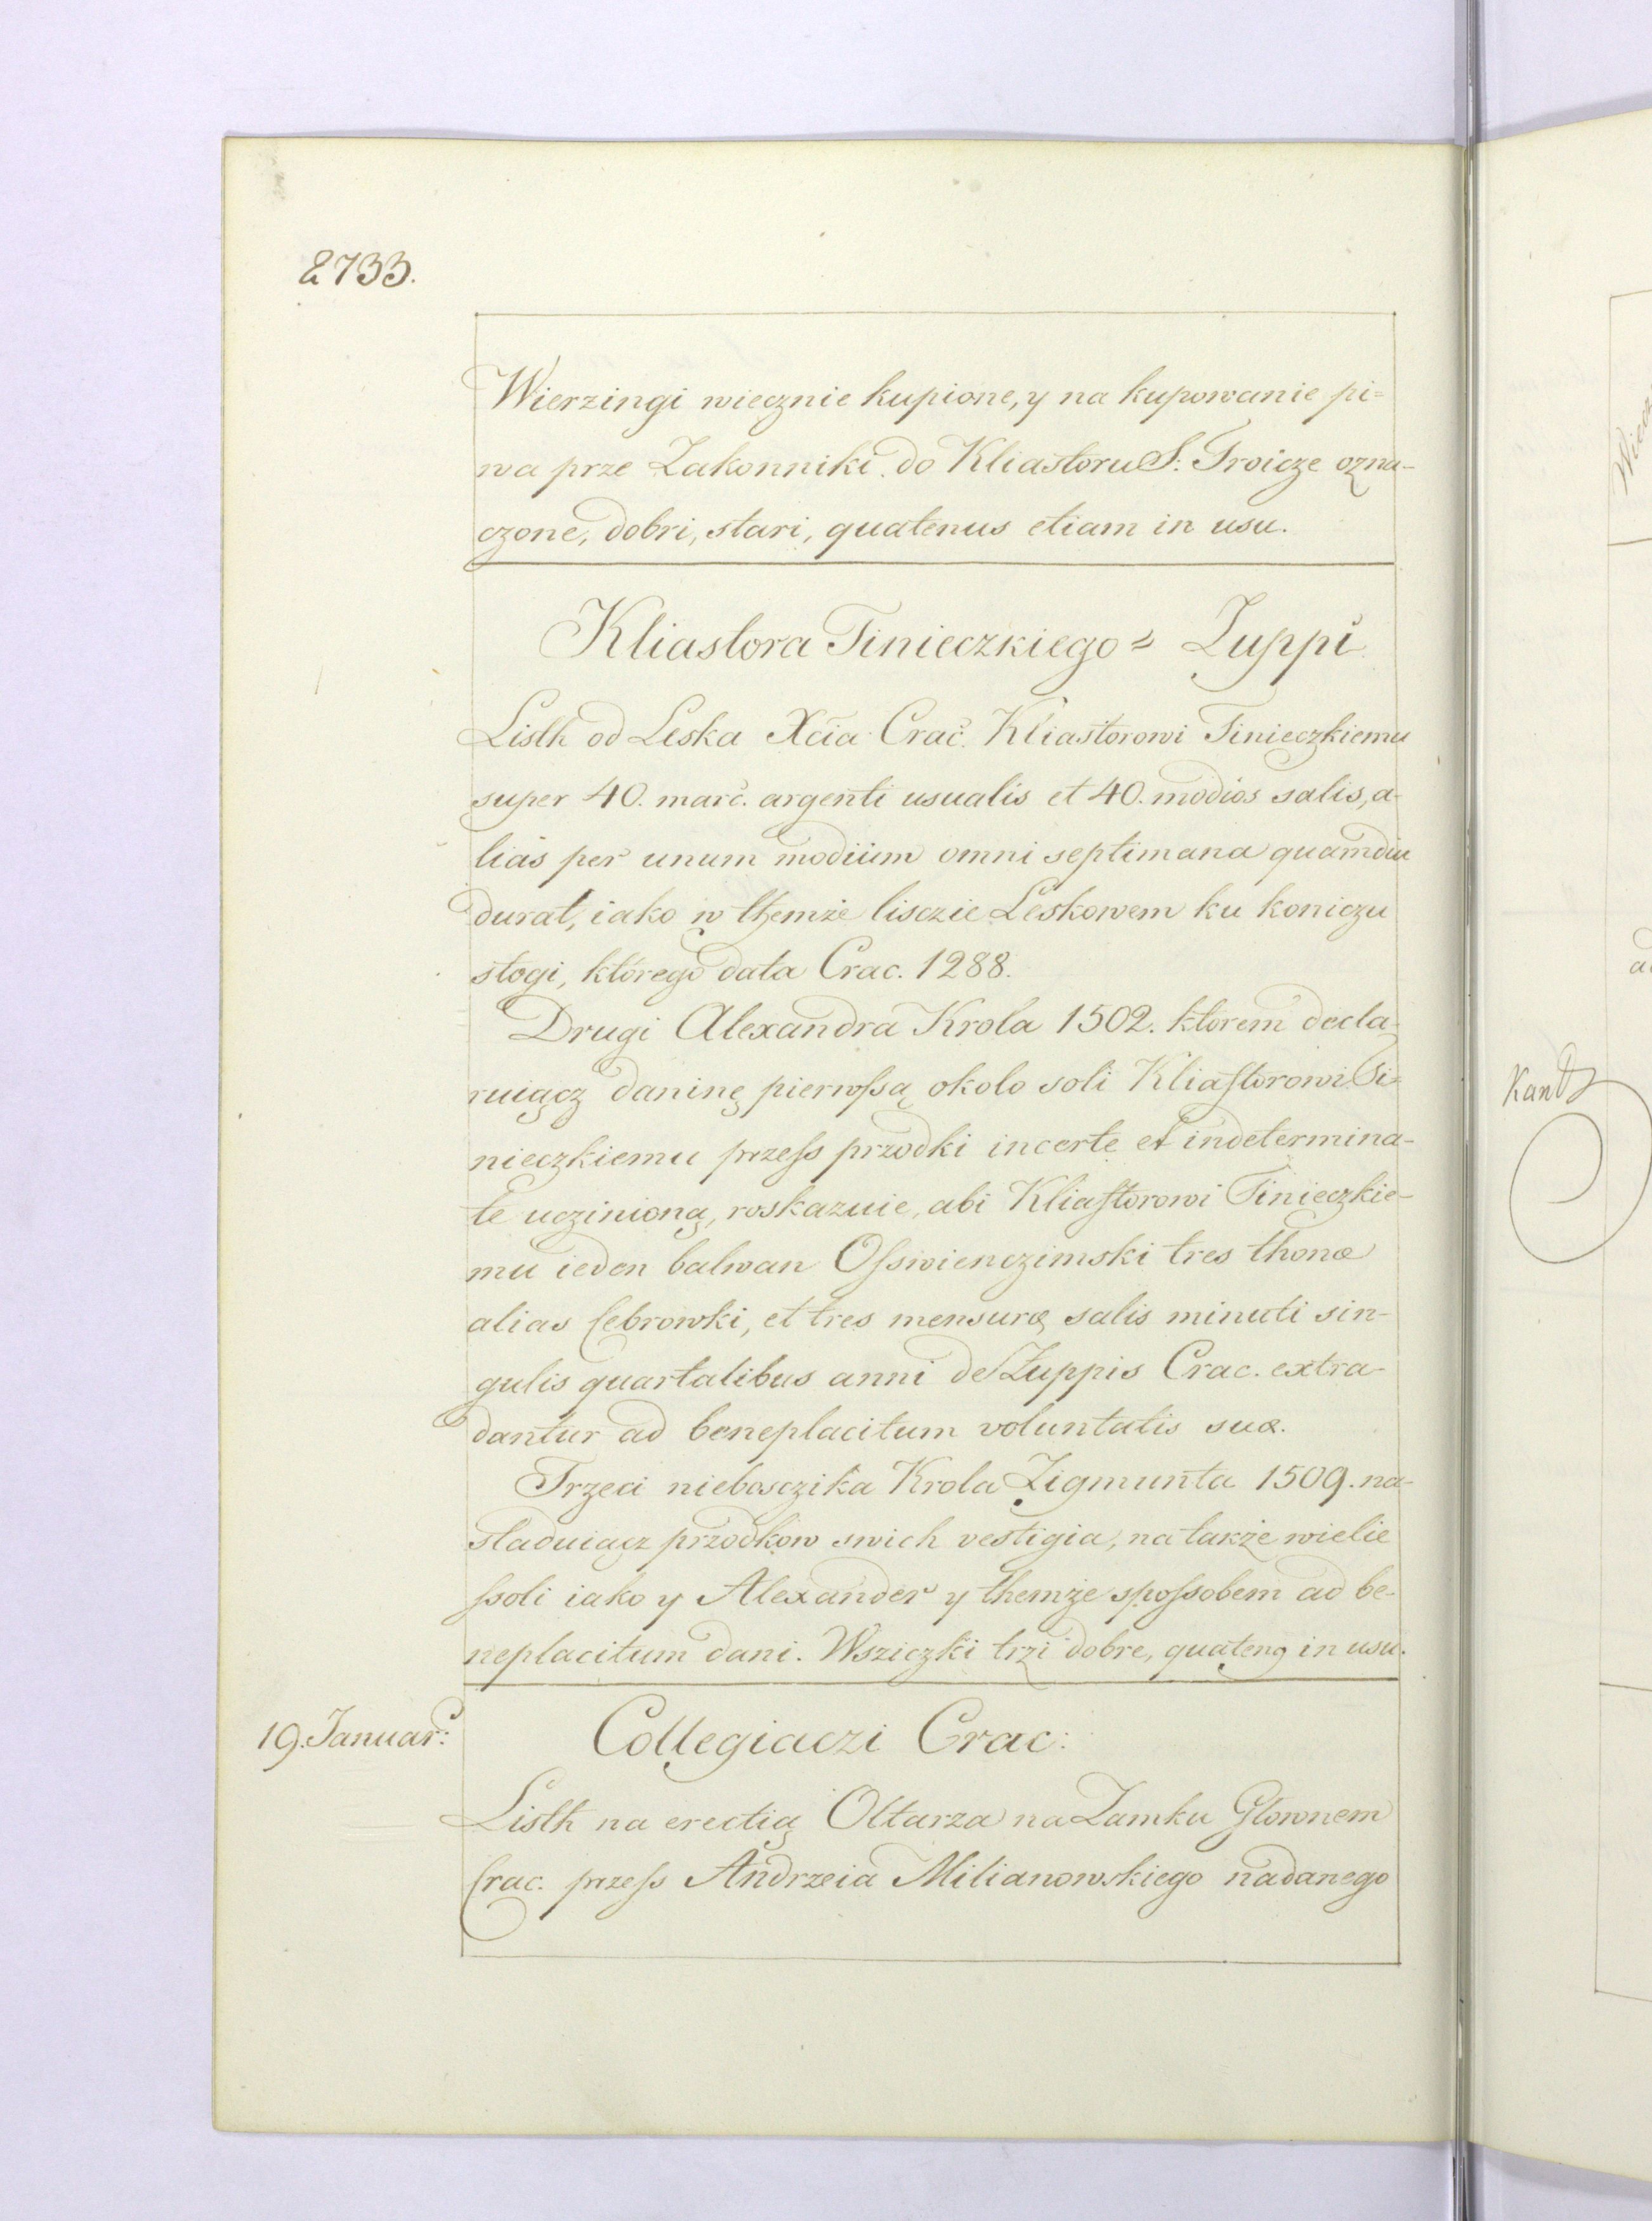 2733.
Wierzingi wiecznie kupione, y na kupowanie pi=
wa prze Zakonniki do Kliastoru S: Troicze ozna-
czone, dobri, stari, quatenus etiam in usu.
Kliastora Tinieczkiego z Zuppi
Listh od Leska Xcia Crac. Kliastorowi Tinieczkiemu
super 40. marc. argenti usualis et 40. modios salis, a-
lias per unum modium omni septimana quamdiu
durat, iako w themże lisczie Leskowem ku koniczu
stogi, którego data Crac. 1288.
Drugi Alexandra Krola 1502. ktorem decla-
ruiącz daninę pierwſsą okolo soli Kliaſtorowi Ti=
nieczkiemu przeſs przodki incerte et indetermina-
te uczinioną, roskazuie, abi Kliaſtorowi Tinieczkie-
mu ieden balwan Oſswienczimski tres thonæ
alias Cebrowki, et tres mensuræ salis minuti sin-
gulis quartalibus anni de Zuppis Crac. extra-
dantur ad beneplacitum voluntatis suæ.
Trzeci nieboszczika Krola Zigmunta 1509. na-
sladuiącz przodkow swich vestigia, na także wielie
ſsoli iako y Alexander y themże spoſsobem ad be-
neplacitum dani. Wsziczki trzi dobre, quatenꝯ in usu.
19. Januar:
Collegiaczi Crac:
Listh na erectią Oltarza na Zamku Głownem
Crac. przeſs Andrzeia Milianowskiego nadanego
Kant